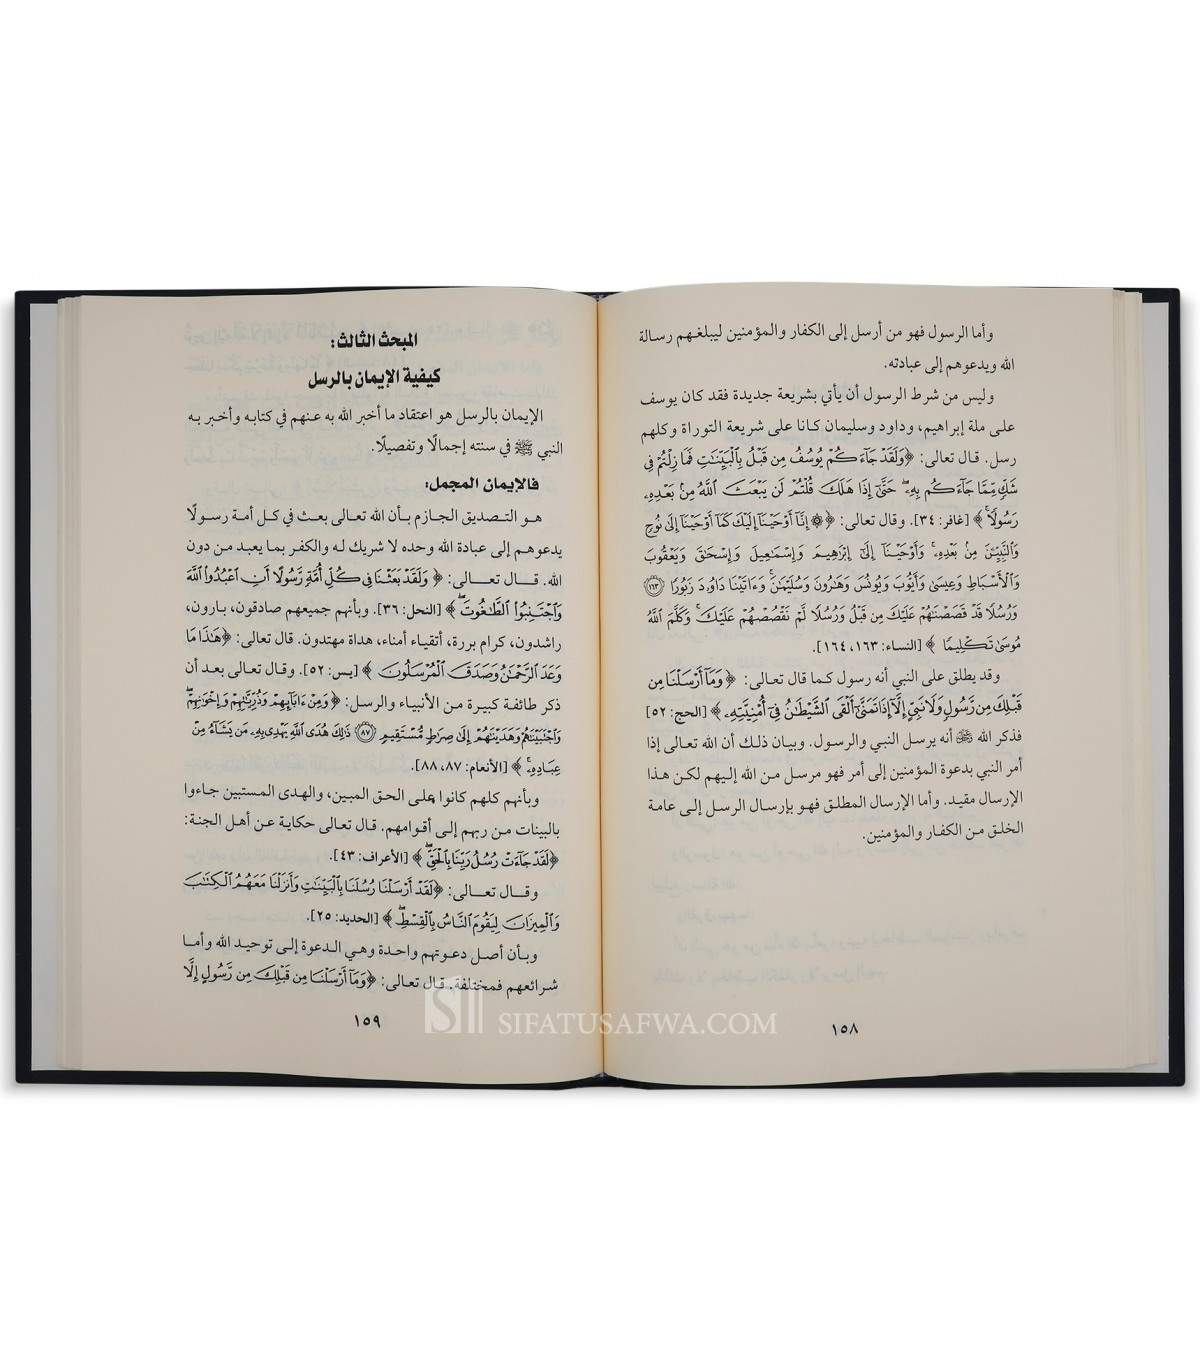 وأما الرسول فهو من أرسل إلى الكفار والمؤمنين ليبلغهم رسالة
الله ويدعوهم إلى عبادته.
وليس من شرط الرسول أن يأتي بشريعة جديدة فقد كان يوسف
على ملة إبراهيم، وداود وسليمان كانا على شريعة التوراة وكلهم
رسل. قال تعالى: ﴿وَلَقَدْ جَاءَكُمْ يُوسُفُ مِن قَبْلُ بِالْبَيِّنَاتِ فَمَا زِلْتُمْ فِي
شَكٍّ مِّمَّا جَاءَكُم بِهِ حَتَّى إِذَا هَلَكَ قُلْتُمْ لَن يَبْعَثَ اللَّهُ مِن بَعْدِهِ
رَسُولًا﴾ [غافر: ٣٤]. وقال تعالى: ﴿۞ إِنَّا أَوْحَيْنَا إِلَيْكَ كَمَا أَوْحَيْنَا إِلَى نُوحٍ
وَالنَّبِيِّينَ مِن بَعْدِهِ وَأَوْحَيْنَا إِلَى إِبْرَاهِيمَ وَإِسْمَاعِيلَ وَإِسْحَاقَ وَيَعْقُوبَ
وَالْأَسْبَاطِ وَعِيسَى وَأَيُّوبَ وَيُونُسَ وَهَارُونَ وَسُلَيْمَانَ وَءَاتَيْنَا دَاوُودَ زَبُورًا ١٦٣
وَرُسُلًا قَدْ قَصَصْنَاهُمْ عَلَيْكَ مِن قَبْلُ وَرُسُلًا لَّمْ نَقْصُصْهُمْ عَلَيْكَ وَكَلَّمَ اللَّهُ
مُوسَى تَكْلِيمًا﴾ [النساء: ١٦٣، ١٦٤].
وقد يطلق على النبي أنه رسول كما قال تعالى: ﴿وَمَا أَرْسَلْنَا مِن
قَبْلِكَ مِن رَّسُولٍ وَلَا نَبِيٍّ إِلَّا إِذَا تَمَنَّى أَلْقَى الشَّيْطَانُ فِي أُمْنِيَّتِهِ﴾ [الحج: ٥٢]
فذكر الله ﷺ أنه يرسل النبي والرسول. وبيان ذلك أن الله تعالى إذا
أمر النبي بدعوة المؤمنين إلى أمر فهو مرسل من الله إليهم لكن هذا
الإرسال مقيد. وأما الإرسال المطلق فهو بإرسال الرسل إلى عامة
الخلق من الكفار والمؤمنين.
١٥٨
المبحث الثالث:
كيفية الإيمان بالرسل
الإيمان بالرسل هو اعتقاد ما أخبر الله به عنهم في كتابه وأخبر به
النبي ﷺ في سنته إجمالًا وتفصيلًا.
فالإيمان المجمل:
هو التصديق الجازم بأن الله تعالى بعث في كل أمة رسولًا
يدعوهم إلى عبادة الله وحده لا شريك له والكفر بما يعبد من دون
الله. قال تعالى: ﴿وَلَقَدْ بَعَثْنَا فِي كُلِّ أُمَّةٍ رَّسُولًا أَنِ اعْبُدُوا اللَّهَ
وَاجْتَنِبُوا الطَّاغُوتَ﴾ [النحل: ٣٦]. وبأنهم جميعهم صادقون، بارون،
راشدون، كرام بررة، أتقياء أمناء، هداة مهتدون. قال تعالى: ﴿هَذَا مَا
وَعَدَ الرَّحْمَنُ وَصَدَقَ الْمُرْسَلُونَ﴾ [يس: ٥٢]. وقال تعالى بعد أن
ذكر طائفة كبيرة من الأنبياء والرسل: ﴿وَمِنْ ءَابَائِهِمْ وَذُرِّيَّاتِهِمْ وَإِخْوَانِهِمْ
وَاجْتَبَيْنَاهُمْ وَهَدَيْنَاهُمْ إِلَى صِرَاطٍ مُّسْتَقِيمٍ ٨٧ ذَلِكَ هُدَى اللَّهِ يَهْدِي بِهِ مَن يَشَاءُ مِنْ
عِبَادِهِ﴾ [الأنعام: ٨٧، ٨٨].
وبأنهم كلهم كانوا على الحق المبين، والهدى المستبين جاءوا
بالبينات من ربهم إلى أقوامهم. قال تعالى حكاية عن أهل الجنة:
﴿لَقَدْ جَاءَتْ رُسُلُ رَبِّنَا بِالْحَقِّ﴾ [الأعراف: ٤٣].
وقال تعالى: ﴿لَقَدْ أَرْسَلْنَا رُسُلَنَا بِالْبَيِّنَاتِ وَأَنزَلْنَا مَعَهُمُ الْكِتَابَ
وَالْمِيزَانَ لِيَقُومَ النَّاسُ بِالْقِسْطِ﴾ [الحديد: ٢٥].
وبأن أصل دعوتهم واحدة وهي الدعوة إلى توحيد الله وأما
شرائعهم فمختلفة. قال تعالى: ﴿وَمَا أَرْسَلْنَا مِن قَبْلِكَ مِن رَّسُولٍ إِلَّا
١٥٩
SIFATUSAFWA.COM